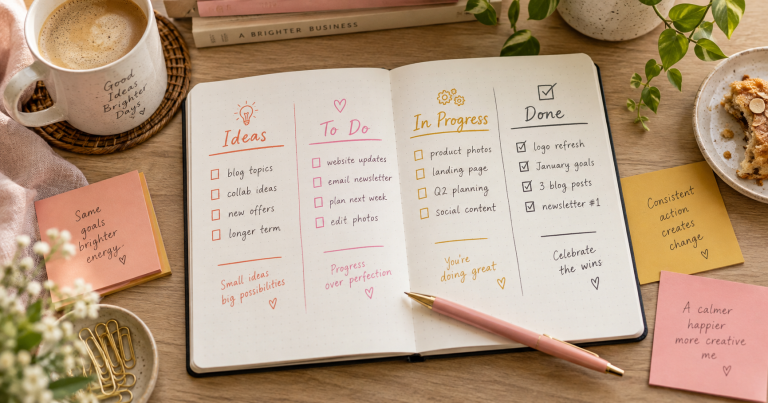 A BRIGHTER BUSINESS
Good
Ideas
Brighter
Days
Ideas
blog topics
collab ideas
new offers
longer term
Small ideas
big possibilities
To Do
website updates
email newsletter
plan next week
edit photos
Progress
over perfection
In Progress
product photos
landing page
Q2 planning
social content
You're
doing great
Done
logo refresh
January goals
3 blog posts
newsletter #1
Celebrate
the wins
Same
goals
brighter
energy.
Consistent
action
creates
change
A calmer
happier
more creative
me